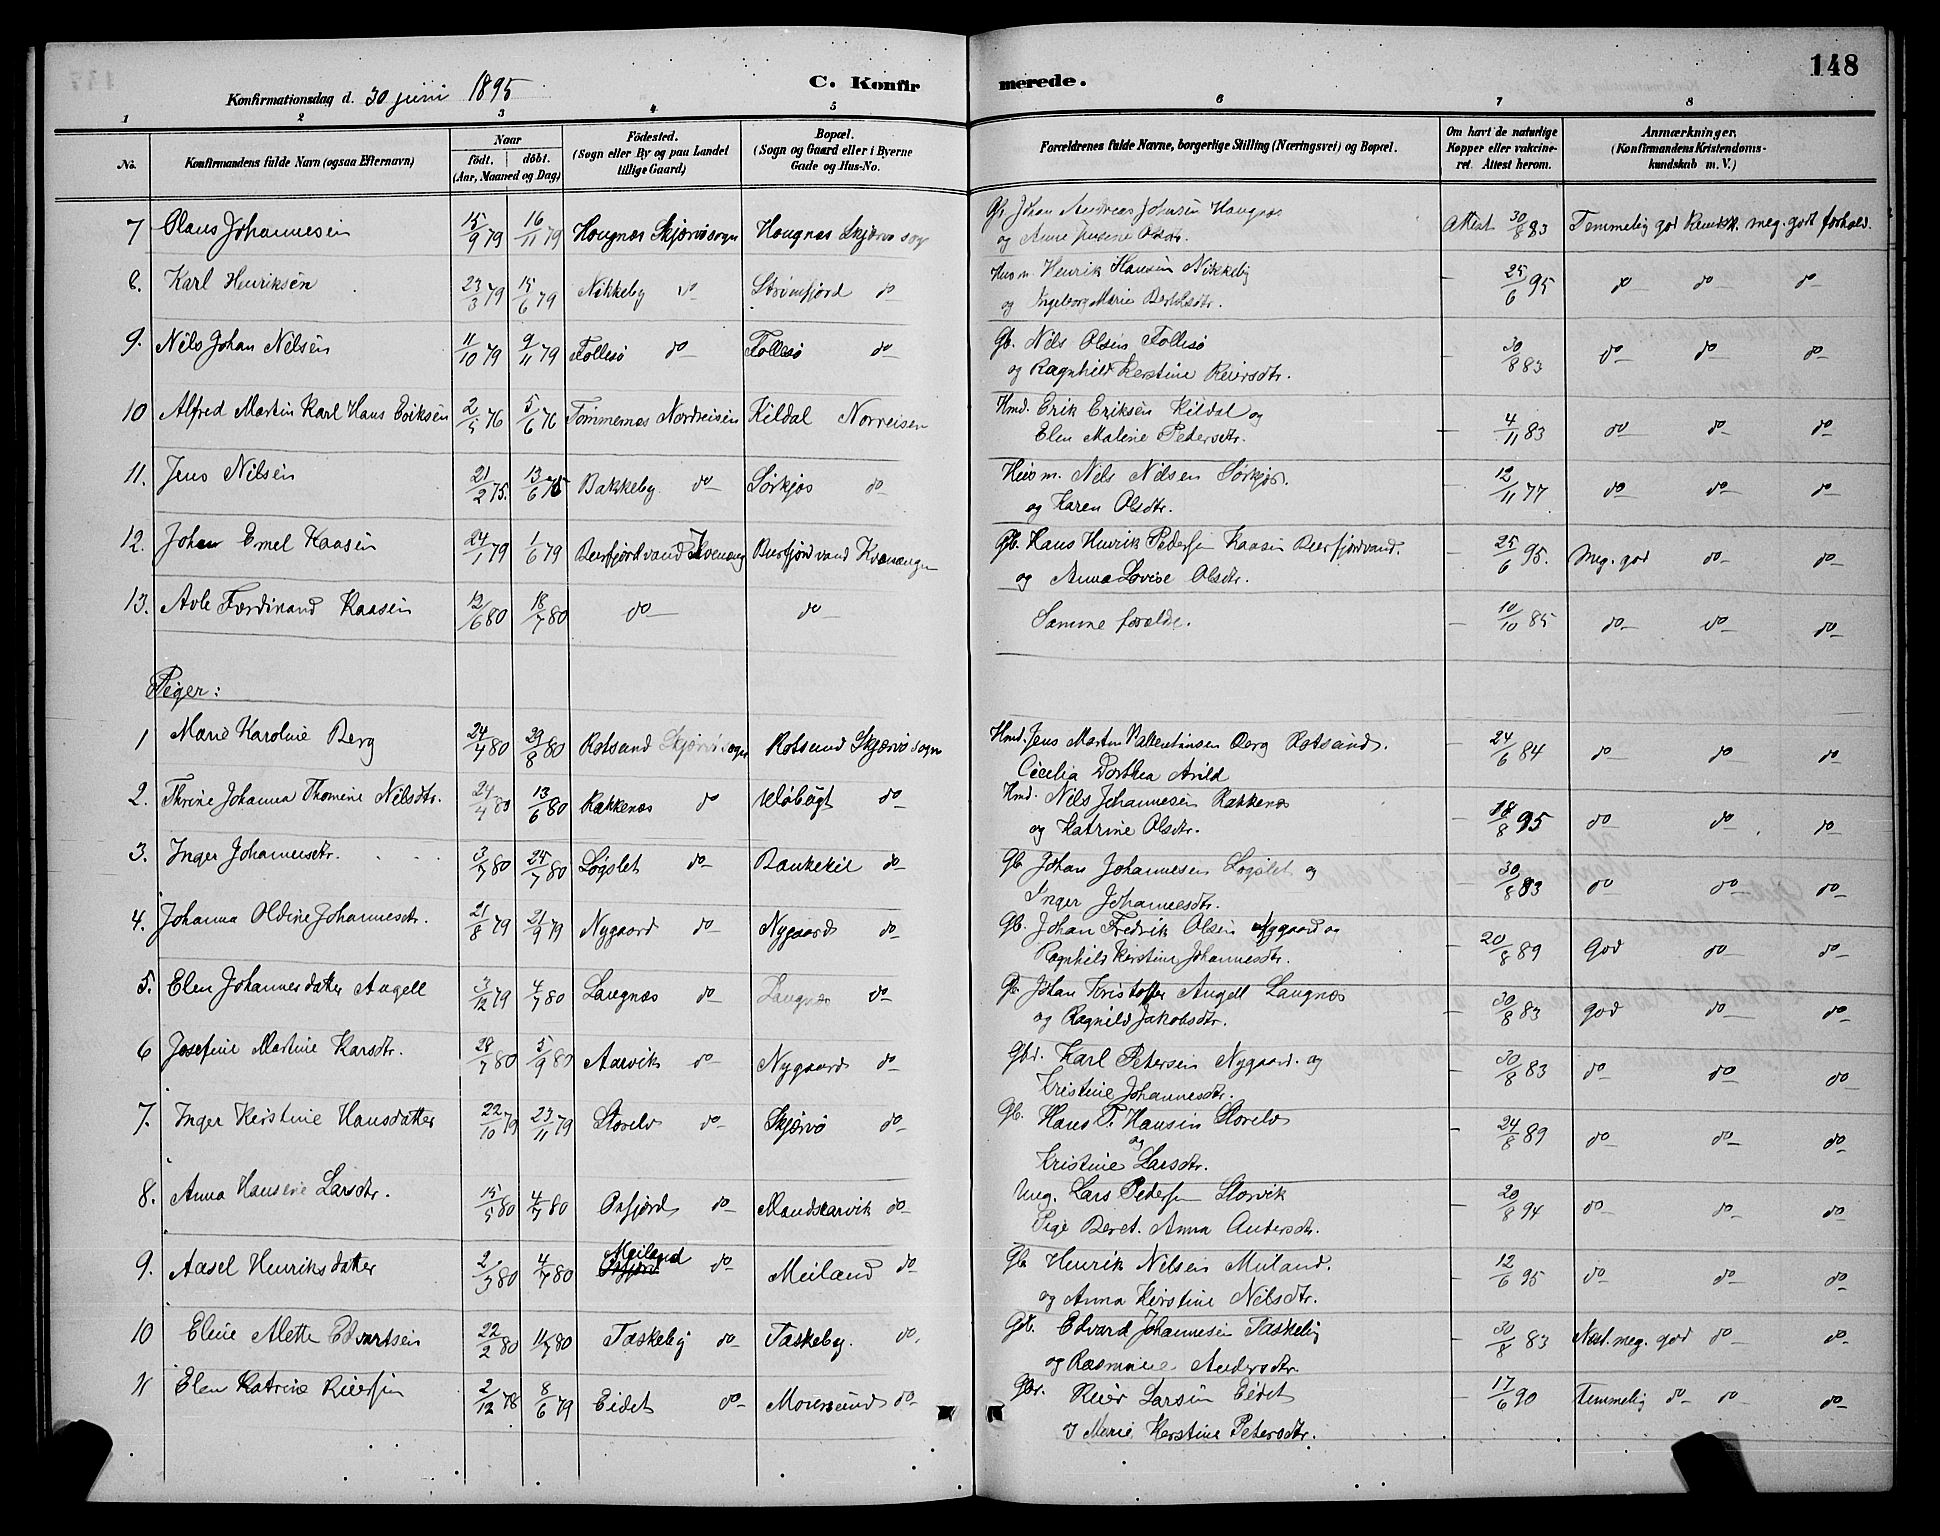 148
Konfirmationsdag d. 30 juni 1895 C. Konfirmerede.
1 2 3 4 5 6 7 8
No. Konfirmandens fulde Navn (ogsaa Efternavn) Naar født. døbt. (Aar, Maaned og Dag) Fødested. (Sogn eller By og paa Landet tillige Gaard) Bopæl. (Sogn og Gaard eller i Byerne Gade og Hus-No. Forældrenes fulde Navne, borgerlige Stilling (Næringsvei) og Bopæl. Om havt de naturlige Kopper eller vaccineret. Attest herom. Anmærkninger. (Konfirmandens Kristendomskundskab m. V.)
7 Olaus Johannesen 15/9 79 16/11 79 Hougnæs Skjærvø sogn Hougnæs Skjærvø sogn Gb. Johan Andreas Johnsen Hougnæs Attest 30/8 83 Temmelig god Kundsk. meg. godt forhold.
og Anne Olsdtr.
8. Karl Henriksen 23/3 79 15/6 79 Nikkeby do Strømfjord do Husm. Henrik Hansen Nikkeby – 25/6 95 do do do
og Ingeborg Marie Bertelsdtr.
9. Nils Johan Nilsen 11/10 79 9/11 79 Follesø do Follesø do Gb. Nils Olsen Follesø – 30/8 83 do do do
og Ragnhild Kerstine Reiersdtr.
10 Alfred Martin Karl Hans Eriksen 2/5 76 5/6 76 Tømmernæs Nordreisen Kildal Norreisen Hmd. Erik Eriksen Kildal og – 4/11 83 do do do
Elen Malene Pedersdtr.
11. Jens Nilsen 21/2 75. 13/6 75 Bakkeby do Sørkjos do Husm. Nils Nilsen Sørkjos. – 12/11 77 do do do
og Karen Olsdtr.
12. Johan Emel Kaasen 24/1 79 1/6 79 Burfjordvand Kvænang Burfjordvand Kvænangn Gb. Hans Henrik Pedersen Kaasen Burfjordvand. – 25/6 95. Meg. god do do
og Anna Lovise Olsdtr.
13. Avle Færdinand Kaasen 12/6 80 18/7 80 do do Samme forældr. – 10/10 85 do do do
Piger:
1 Marie Karoline Berg 24/4 80 29/8 80 Rotsund Skjærvø sogn Rotsund Skjærvø sogn Hmd. Jens Martin Valentinsen Berg Rotsund. – 24/6 84 do do do
Cecelia Dorthea Arild
2. Thrine Johanna Thomine Nilsdtr. 24/4 80 13/6 80 Rakkenæs do Uløbugt do Hmd. Nils Johannesen Rakkenæs – 18/8 95 do do do
og Katrine Olsdtr.
3. Inger Johannesdtr. 3/7 80 24/7 80 Løgslet do Bankekil do Gb. Johan Johannesen Løgslet og – 30/8 83 do do do
Inger Johannesdtr.
4. Johanna Oldine Johannesdtr. 21/8 79 21/9 79 Nygaard do Nygaard do Gb. Johan Fredrik Olsen Nygaard og – 20/8 89 God do do
Ragnhild Kerstine Johannesdtr.
5. Elen Johannesdatter Angell 3/12 79 4/7 80 Laugnæs do Laugnæs do Gb. Johan Kristoffer Angell Laugnæs – 30/8 83 God do do
og Ragnild Jakobsdtr.
6 Josefine Martine Karsdtr. 28/7 80 5/9 80 Aarvik do Nygaard do Gbd. Karl Petersen Nygaard. og – 30/8 83 do do do
Kristine Johannesdtr.
7. Inger Kerstine Hansdatter 22/10 79 23/11 79 Storelv do Skjærvø do Gb. Hans T. Hansen Storelv – 24/8 89 do do do
og
Kristine Larsdtr.
8. Anna Hansine Larsdtr. 15/5 80 4/7 80 Oxfjord do Mandskarvik do Ung. Lars Pedersen Storvik – 20/8 94 do do do
Pige Beret Anna Andersdtr.
9. Aasel Henriksdatter 2/3 80 4/7 80 Meiland do Meiland do Gb. Henrik Nilsen Meiland. – 12/6 95 do do do
og Anna Kerstine Nilsdtr.
10 Eline Alette Edvartsen 22/2 80 11/7 80 Taskeby do Taskeby. do. Gb. Edvard Johannesen Taskeby – 30/8 83 Næst. meg. god do do
og Rasmine Andersdtr.
11 Elen Katrine Reiersen 2/12 78 8/6 79 Eidet do Moursund do Gbr. Reier Larsen Eidet – 17/6 90 Temmelig do do do
& Marie Kerstine Petersdtr.